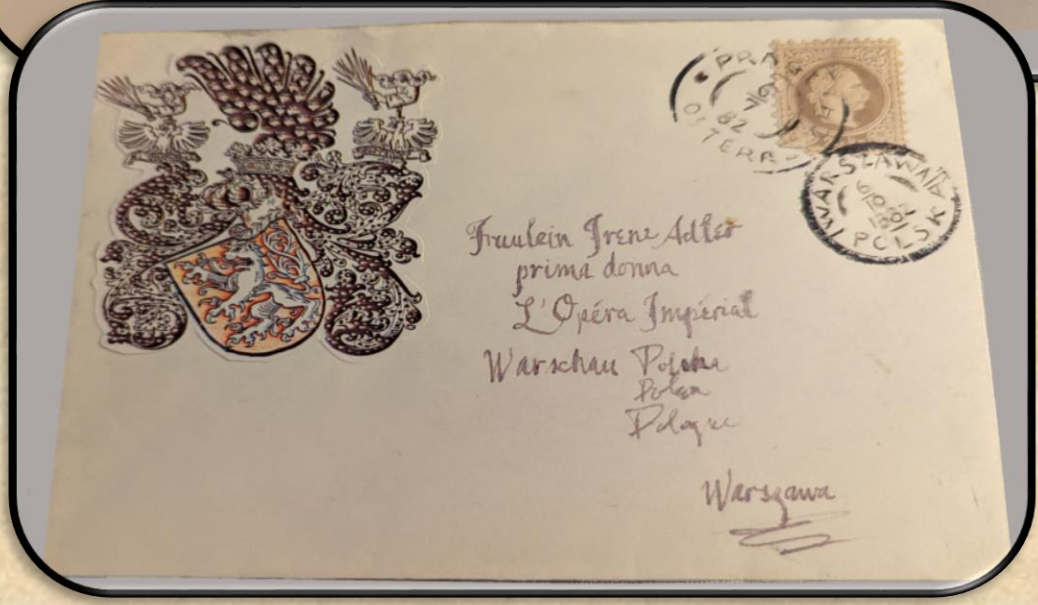 PRAG
6
7
82
WARSZAWA
POLSKA
Fraulein Irene Adler
prima donna
L'Opéra Impérial
Warschau Polska
Polen
Pologne
Warszawa